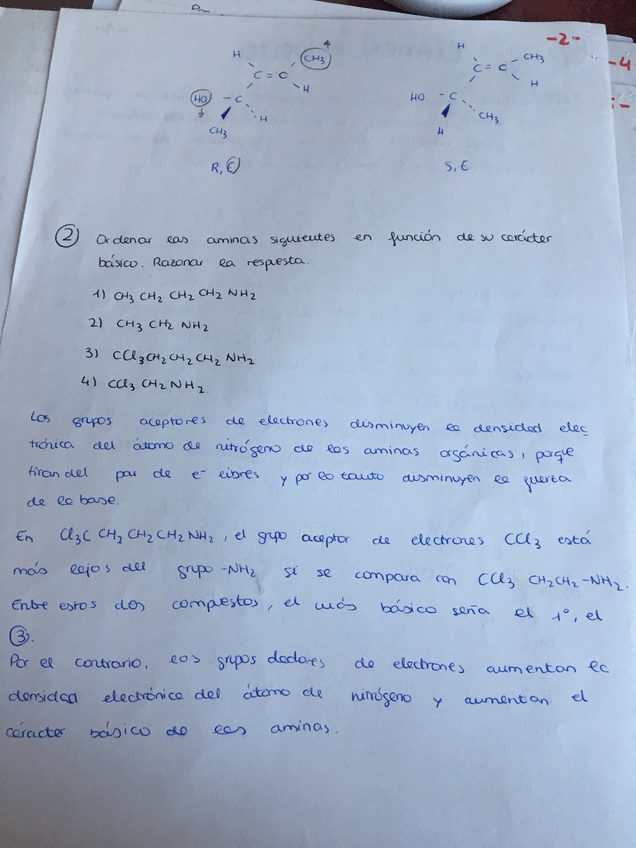 -2-
-4
H CH3 H CH3
C = C C = C
H H
HO - C HO - C
CH3 H H CH3
R, E S, E
② Ordenar las aminas siguientes en función de su carácter
básico. Razonar la respuesta.
1) CH3 CH2 CH2 CH2 NH2
2) CH3 CH2 NH2
3) CCl3CH2CH2CH2 NH2
4) CCl3 CH2 NH2
Los grupos aceptores de electrones disminuyen la densidad elec
trónica del átomo de nitrógeno de las aminas orgánicas, porque
tiran del par de e- libres y por lo tanto disminuyen la fuerza
de la base.
En Cl3C CH2 CH2 CH2 NH2, el grupo aceptor de electrones CCl3 está
más lejos del grupo -NH2 si se compara con CCl3 CH2CH2-NH2.
Entre estos dos compuestos, el más básico sería el 1º, el
③.
Por el contrario, los grupos dadores de electrones aumentan la
densidad electrónica del átomo de nitrógeno y aumentan el
carácter básico de las aminas.